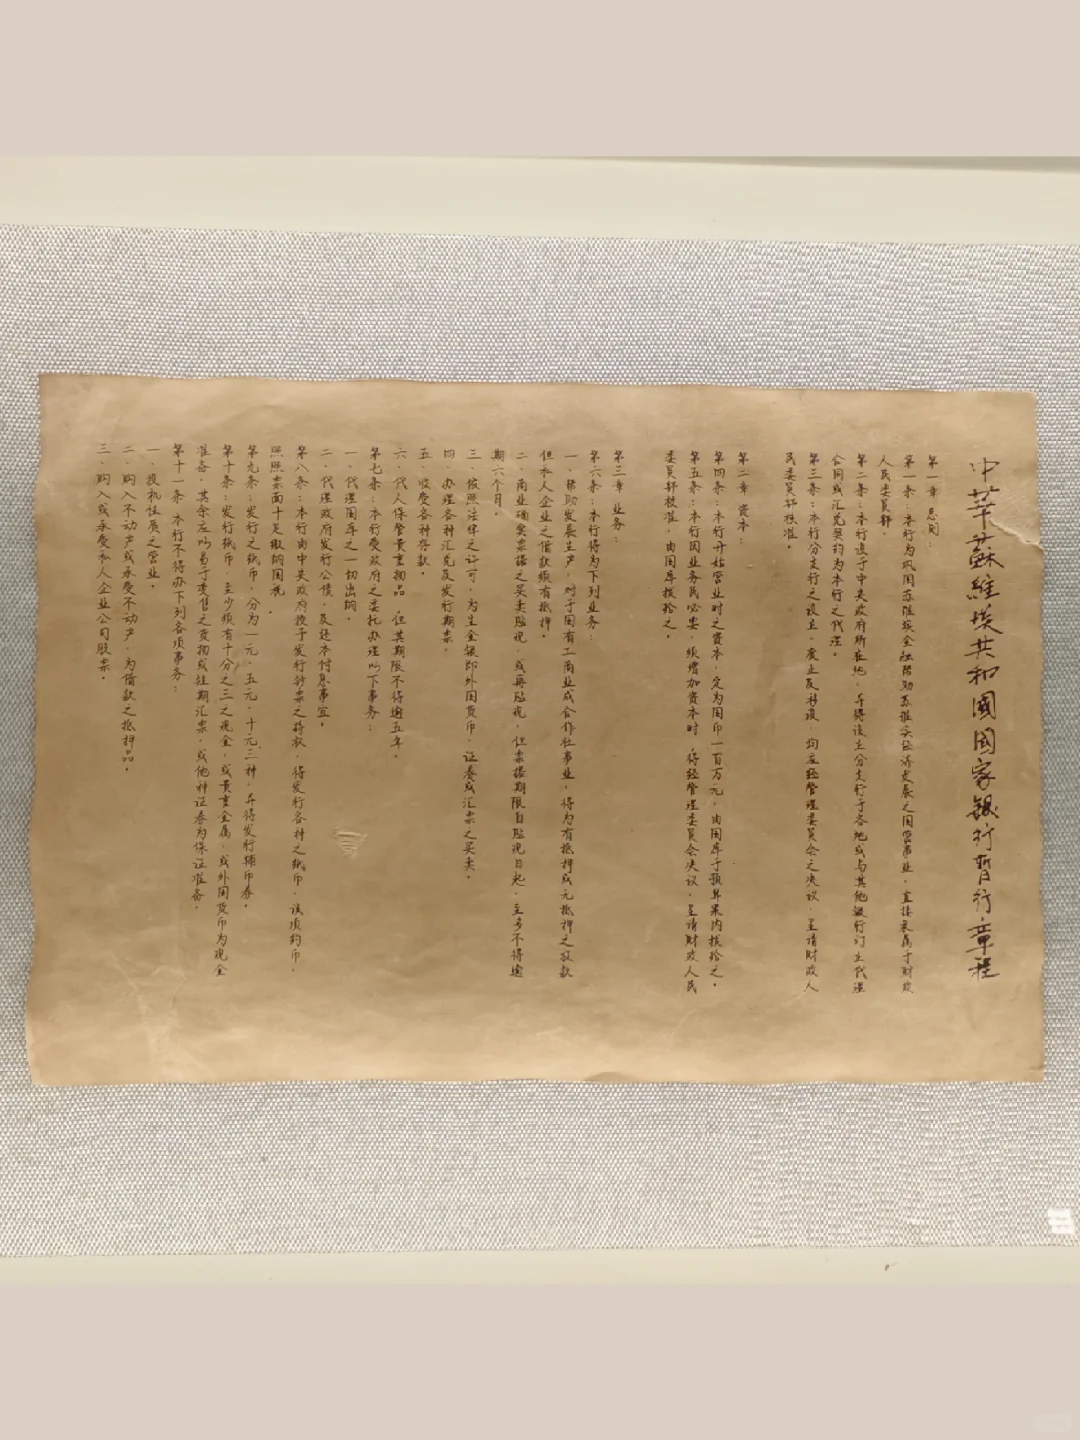 中華蘇維埃共和國國家銀行暫行章程
第一章 总则：
第一条：本行为巩固苏维埃金融帮助苏维埃经济发展之国营事业，直接隶属于财政
人民委员部。
第二条：本行设于中央政府所在地，并得设立分支行于各地或与其他银行订立代理
合同或汇兑契约为本行之代理。
第三条：本行分支行之设立，废止及移设，均应经管理委员会之决议，呈请财政人
民委员部核准。
第二章 资本：
第四条：本行开始营业时之资本，定为国币一百万元，由国库于预算案内拨给之。
第五条：本行因业务民必要，须增加资本时，得经管理委员会决议，呈请财政人民
委员部核准，由国库拨给之。
第三章 业务：
第六条：本行得为下列业务：
一、帮助发展生产，对于国有工商业或合作社事业，得为有抵押或元抵押之放款
但私人企业之借款须有抵押。
二、商业确实票据之买卖贴现，或再贴现，但票据期限自贴现日起，至多不得逾
期六个月。
三、依照法律之许可，为生金银即外国货币，证券或汇票之买卖。
四、办理各种汇兑及发行期票。
五、收受各种存款。
六、代人保管贵重物品，但其期限不得逾五年。
第七条：本行受政府之委托办理以下事务：
一、代理国库之一切出纳。
二、代理政府发行公债，及还本付息事宜。
第八条：本行由中央政府授予发行钞票之特权，得发行各种之纸币，该项钞币，
照照票面十足缴纳国税。
第九条：发行之纸币，分为一元，五元，十元三种，并得发行辅币券。
第十条：发行纸币，至少须有十分之三之现金，或贵重金属，或外国货币为现金
准备，其余应以易于变售之货物或短期汇票，或他种证券为保证准备。
第十一条 本行不得办下列各项事务：
一、投机性质之营业。
二、购入不动产或承受不动产，为借款之抵押品。
三、购入或承受私人企业公司股票。